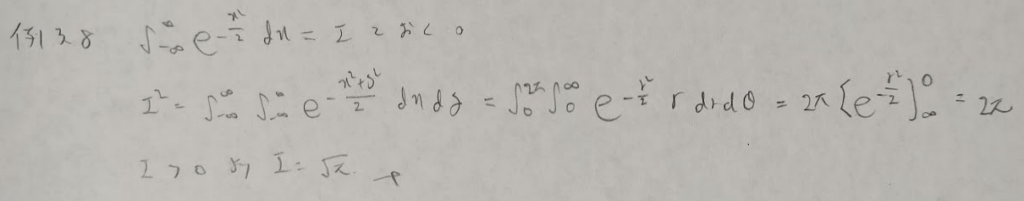 例38 ∫_{-∞}^{∞} e^{-\frac{x^2}{2}} dx = I とおく。
I^2 = ∫_{-∞}^{∞} ∫_{-∞}^{∞} e^{-\frac{x^2+y^2}{2}} dx dy = ∫_0^{2π} ∫_0^{∞} e^{-\frac{r^2}{2}} r dr dθ = 2π [e^{-\frac{r^2}{2}}]_{∞}^{0} = 2π
I > 0 より I = √π.